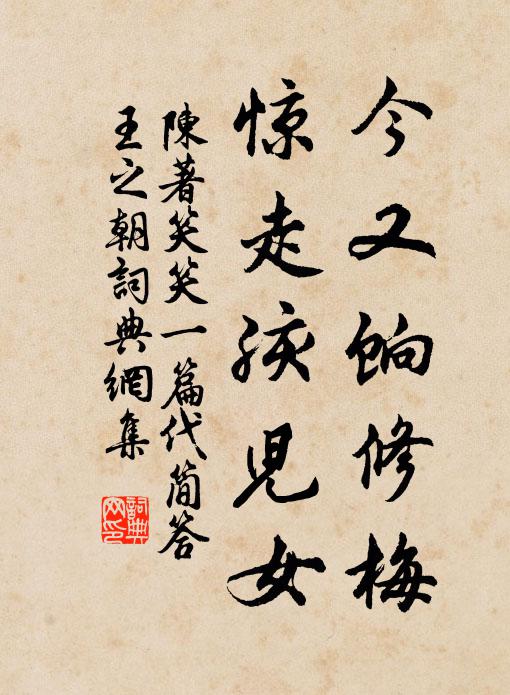 今又餉修梅
惊走孩兒女
陳著笑笑一篇代简答
王之朝詞典網集
詞典网印